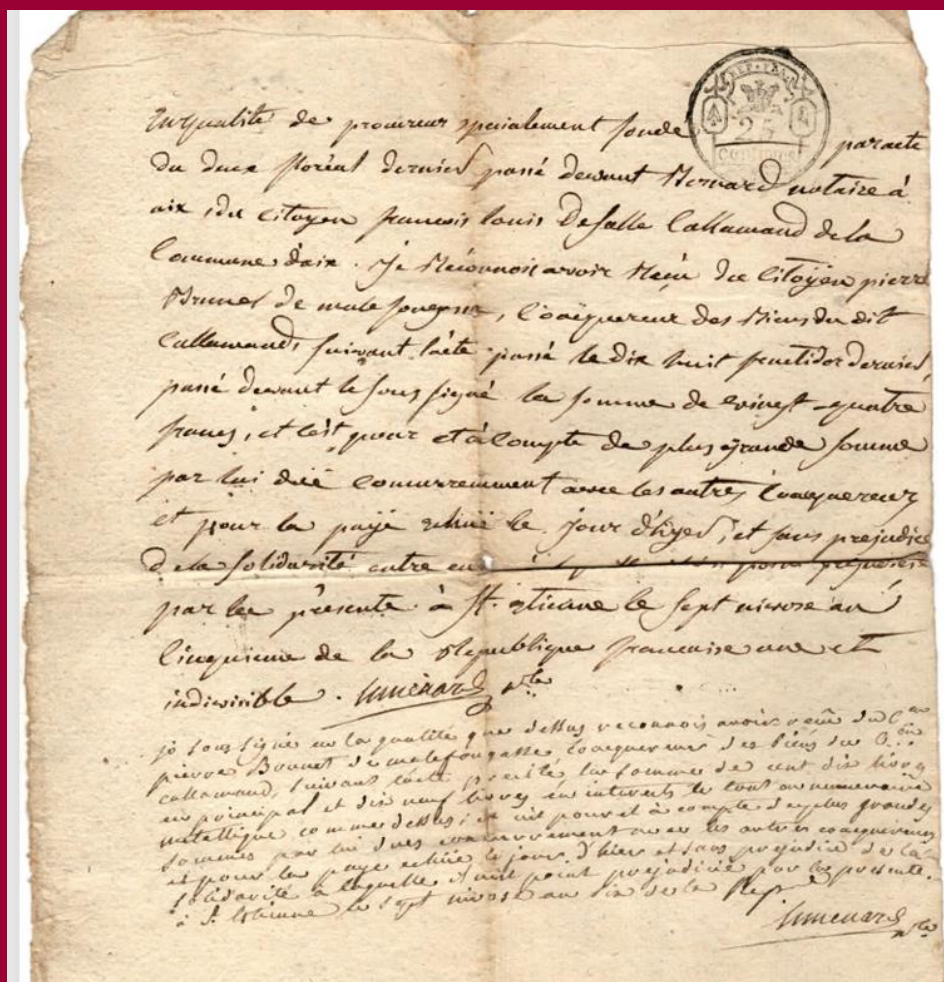 REP. FRA.
25
CENTIMES
En qualité de procureur spécialement fondé par acte
du douze floréal dernier passé devant Bernard notaire à
aix, du Citoyen francois louis Defalle Callamand de la
Commune d'aix. Je Reconnois avoir Reçu du Citoyen pierre
Brunet de malefougasse, Coacquereur des Biens du dit
Callamand, suivant l'acte passé le dix huit fructidor dernier,
passé devant le soussigné la somme de vingt-quatre
francs, et c'est pour et à compte de plus grande somme
par lui düe concurremment avec les autres Coacquereurs
et pour la paye echüe le jour d'hyer, et sans prejudice
de la solidarité entre eux
par les présente à St. etienne le sept nivose an
Cinquieme de la Republique francaise une et
indivisible.
je soussigné en la qualité que dessus reconnois avoir reçu du Cen
pierre Bonnet de malefougasse Coacquereur des biens du
callamand, suivant l'acte précité la somme de cent dix livres
en principal et dix neuf livres en interets le tout en numeraire
métallique comme dessus; et c'est pour et à compte de plus grandes
sommes par lui dues concurremment avec les autres coacquereurs
et pour la paye echüe le jour d'hier et sans prejudice de la
solidarité à laquelle n'est point prejudicié par les presente.
à St. Etienne le sept nivose an six de la Repe